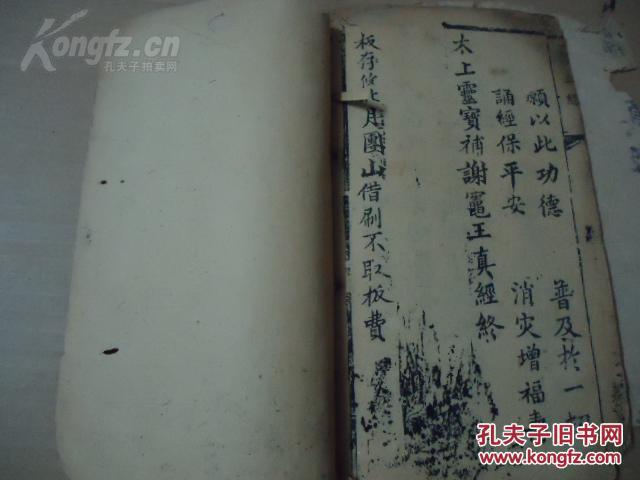 願以此功德 普及於一切
誦經保平安 消灾增福壽
太上靈寶補謝竈王真經終
板存 團山借刷不取板費
Kongfz.cn
孔夫子拍卖网
孔夫子旧书网
www.kongfz.com